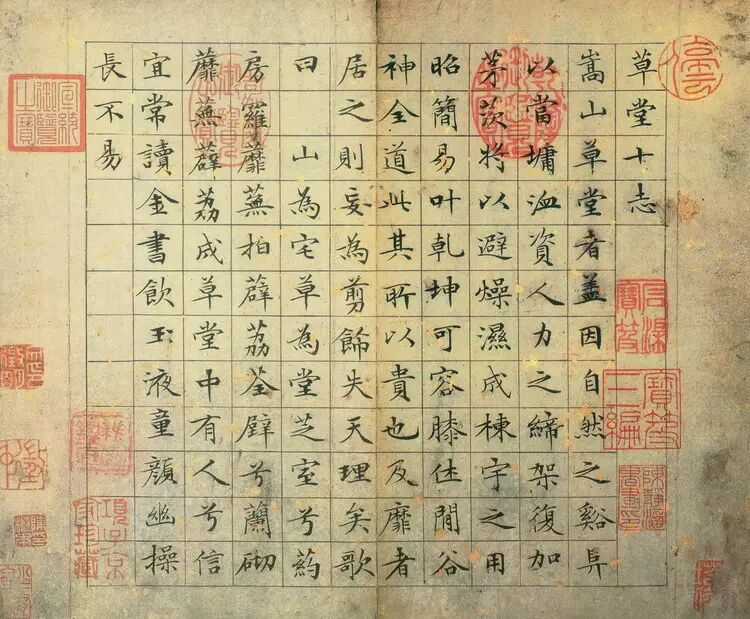 草堂十志
嵩山草堂者盖因自然之谿阜
以當墉洫資人力之締架復加
茅茨将以避燥濕成棟宇之用
昭簡易叶乾坤可容膝休閒谷
神全道此其所以貴也及靡者
居之則妄為剪餝失天理矣歌
曰 山為宅草為堂芝室兮葯
房羅蘼蕪拍薜荔荃壁兮蘭砌
蘼蕪薜荔成草堂中有人兮信
宜常讀金書飲玉液童顔幽操
長不易
石渠寶笈
寶笈三編
宣統御覽之寶
項子京家珍藏